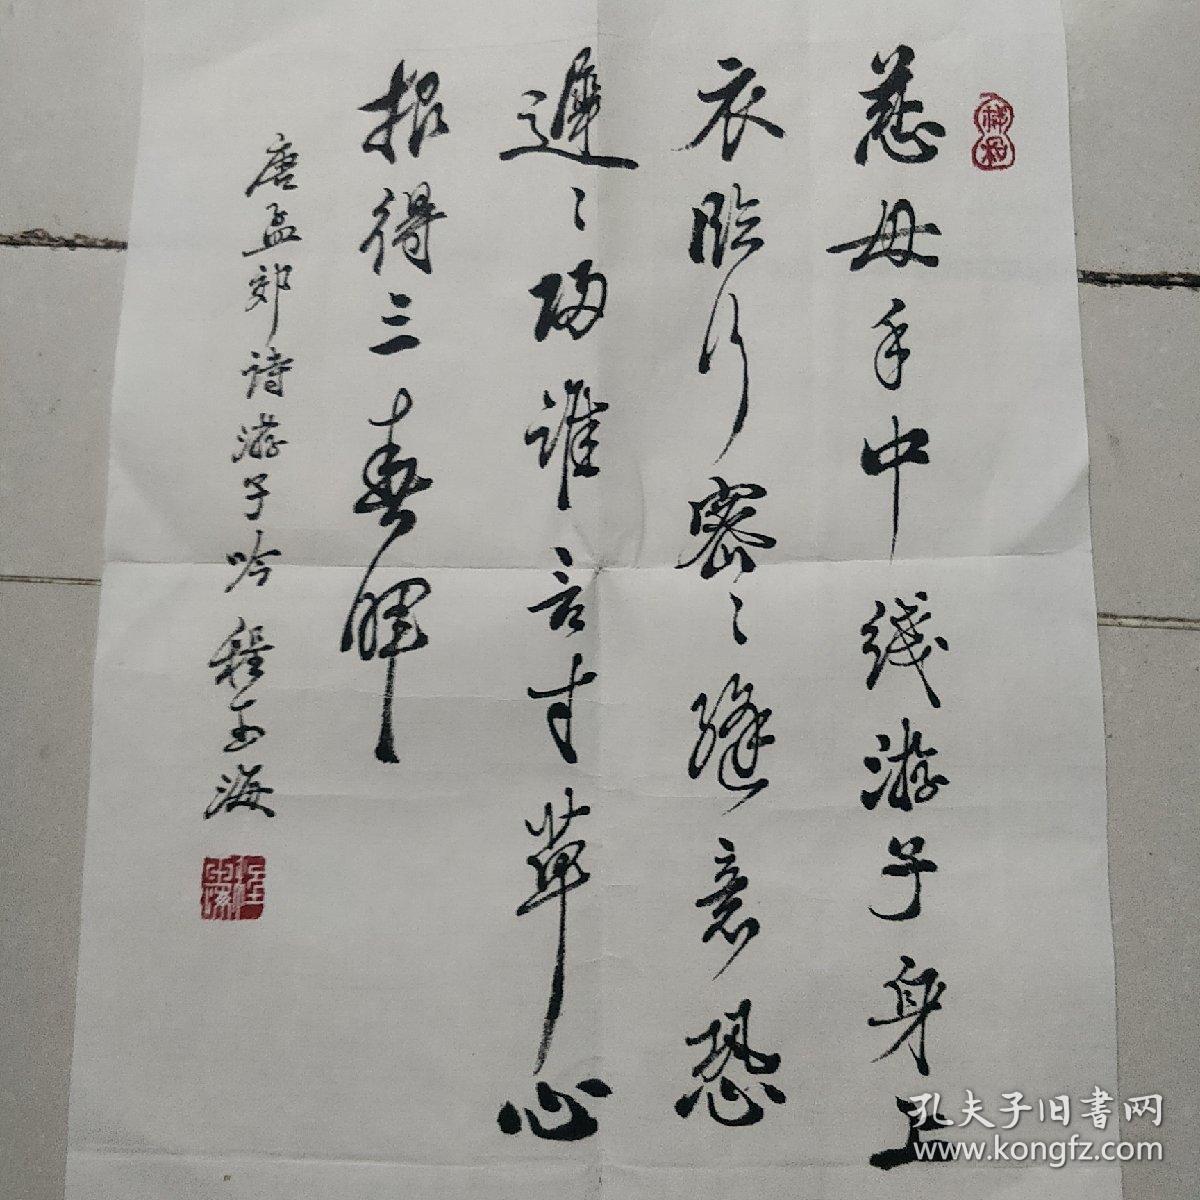 慈母手中线游子身上
衣临行密〻缝意恐
遲〻归谁言寸草心
报得三春晖
唐孟郊诗游子吟 程玉海
孔夫子旧書网
www.kongfz.com